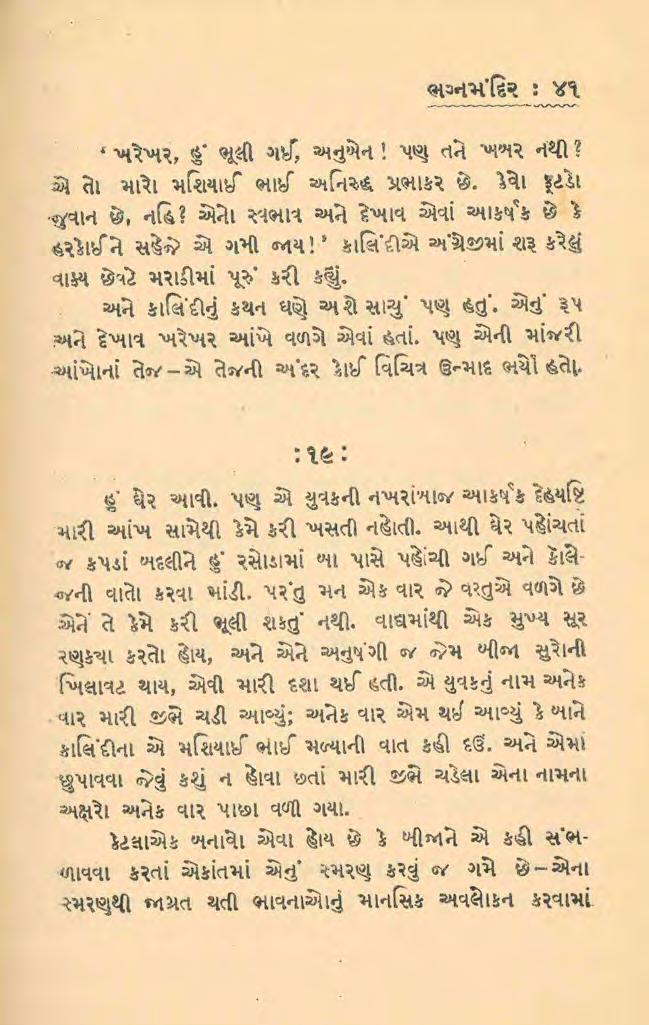 ભગ્નમંદિર : ૪૧
‘ ખરેખર, હું ભૂલી ગઈ, અનુબેન! પણ તને ખબર નથી?
એ તો મારો મશિયાઈ ભાઈ અનિરુદ્ધ પ્રભાકર છે. કેવો ફૂટડો
જુવાન છે, નહિ? એનો સ્વભાવ અને દેખાવ એવાં આકર્ષક છે કે
હરકોઈને સહેજે એ ગમી જાય!’ કાલિંદીએ અંગ્રેજીમાં શરૂ કરેલું
વાક્ય છેવટે મરાઠીમાં પૂરું કરી કહ્યું.
અને કાલિંદીનું કથન ઘણે અંશે સાચું પણ હતું. એનું રૂપ
અને દેખાવ ખરેખર આંખે વળગે એવાં હતાં. પણ એની માંજરી
આંખોનાં તેજ – એ તેજની અંદર કોઈ વિચિત્ર ઉન્માદ ભર્યો હતો.
:૧૯:
હું ઘેર આવી. પણ એ યુવકની નખરાંબાજ આકર્ષક દેહયષ્ટિ
મારી આંખ સામેથી કેમે કરી ખસતી નહોતી. આથી ઘેર પહોંચતાં
જ કપડાં બદલીને હું રસોડામાં બા પાસે પહોંચી ગઈ અને કૉલે-
જની વાતો કરવા માંડી. પરંતુ મન એક વાર જે વસ્તુએ વળગે છે
એને તે કેમે કરી ભૂલી શકતું નથી. વાદ્યમાંથી એક મુખ્ય સૂર
રણક્યા કરતો હોય, અને એને અનુષંગી જ જેમ બીજા સુરોની
ખિલાવટ થાય, એવી મારી દશા થઈ હતી. એ યુવકનું નામ અનેક
વાર મારી જીભે ચડી આવ્યું; અનેક વાર એમ થઈ આવ્યું કે બાને
કાલિંદીના એ મશિયાઈ ભાઈ મળ્યાની વાત કહી દઉં. અને એમાં
છુપાવવા જેવું કશું ન હોવા છતાં મારી જીભે ચડેલા એના નામના
અક્ષરો અનેક વાર પાછા વળી ગયા.
કેટલાએક બનાવો એવા હોય છે કે બીજાને એ કહી સંભ-
ળાવવા કરતાં એકાંતમાં એનું સ્મરણ કરવું જ ગમે છે – એના
સ્મરણથી જાગ્રત થતી ભાવનાઓનું માનસિક અવલોકન કરવામાં